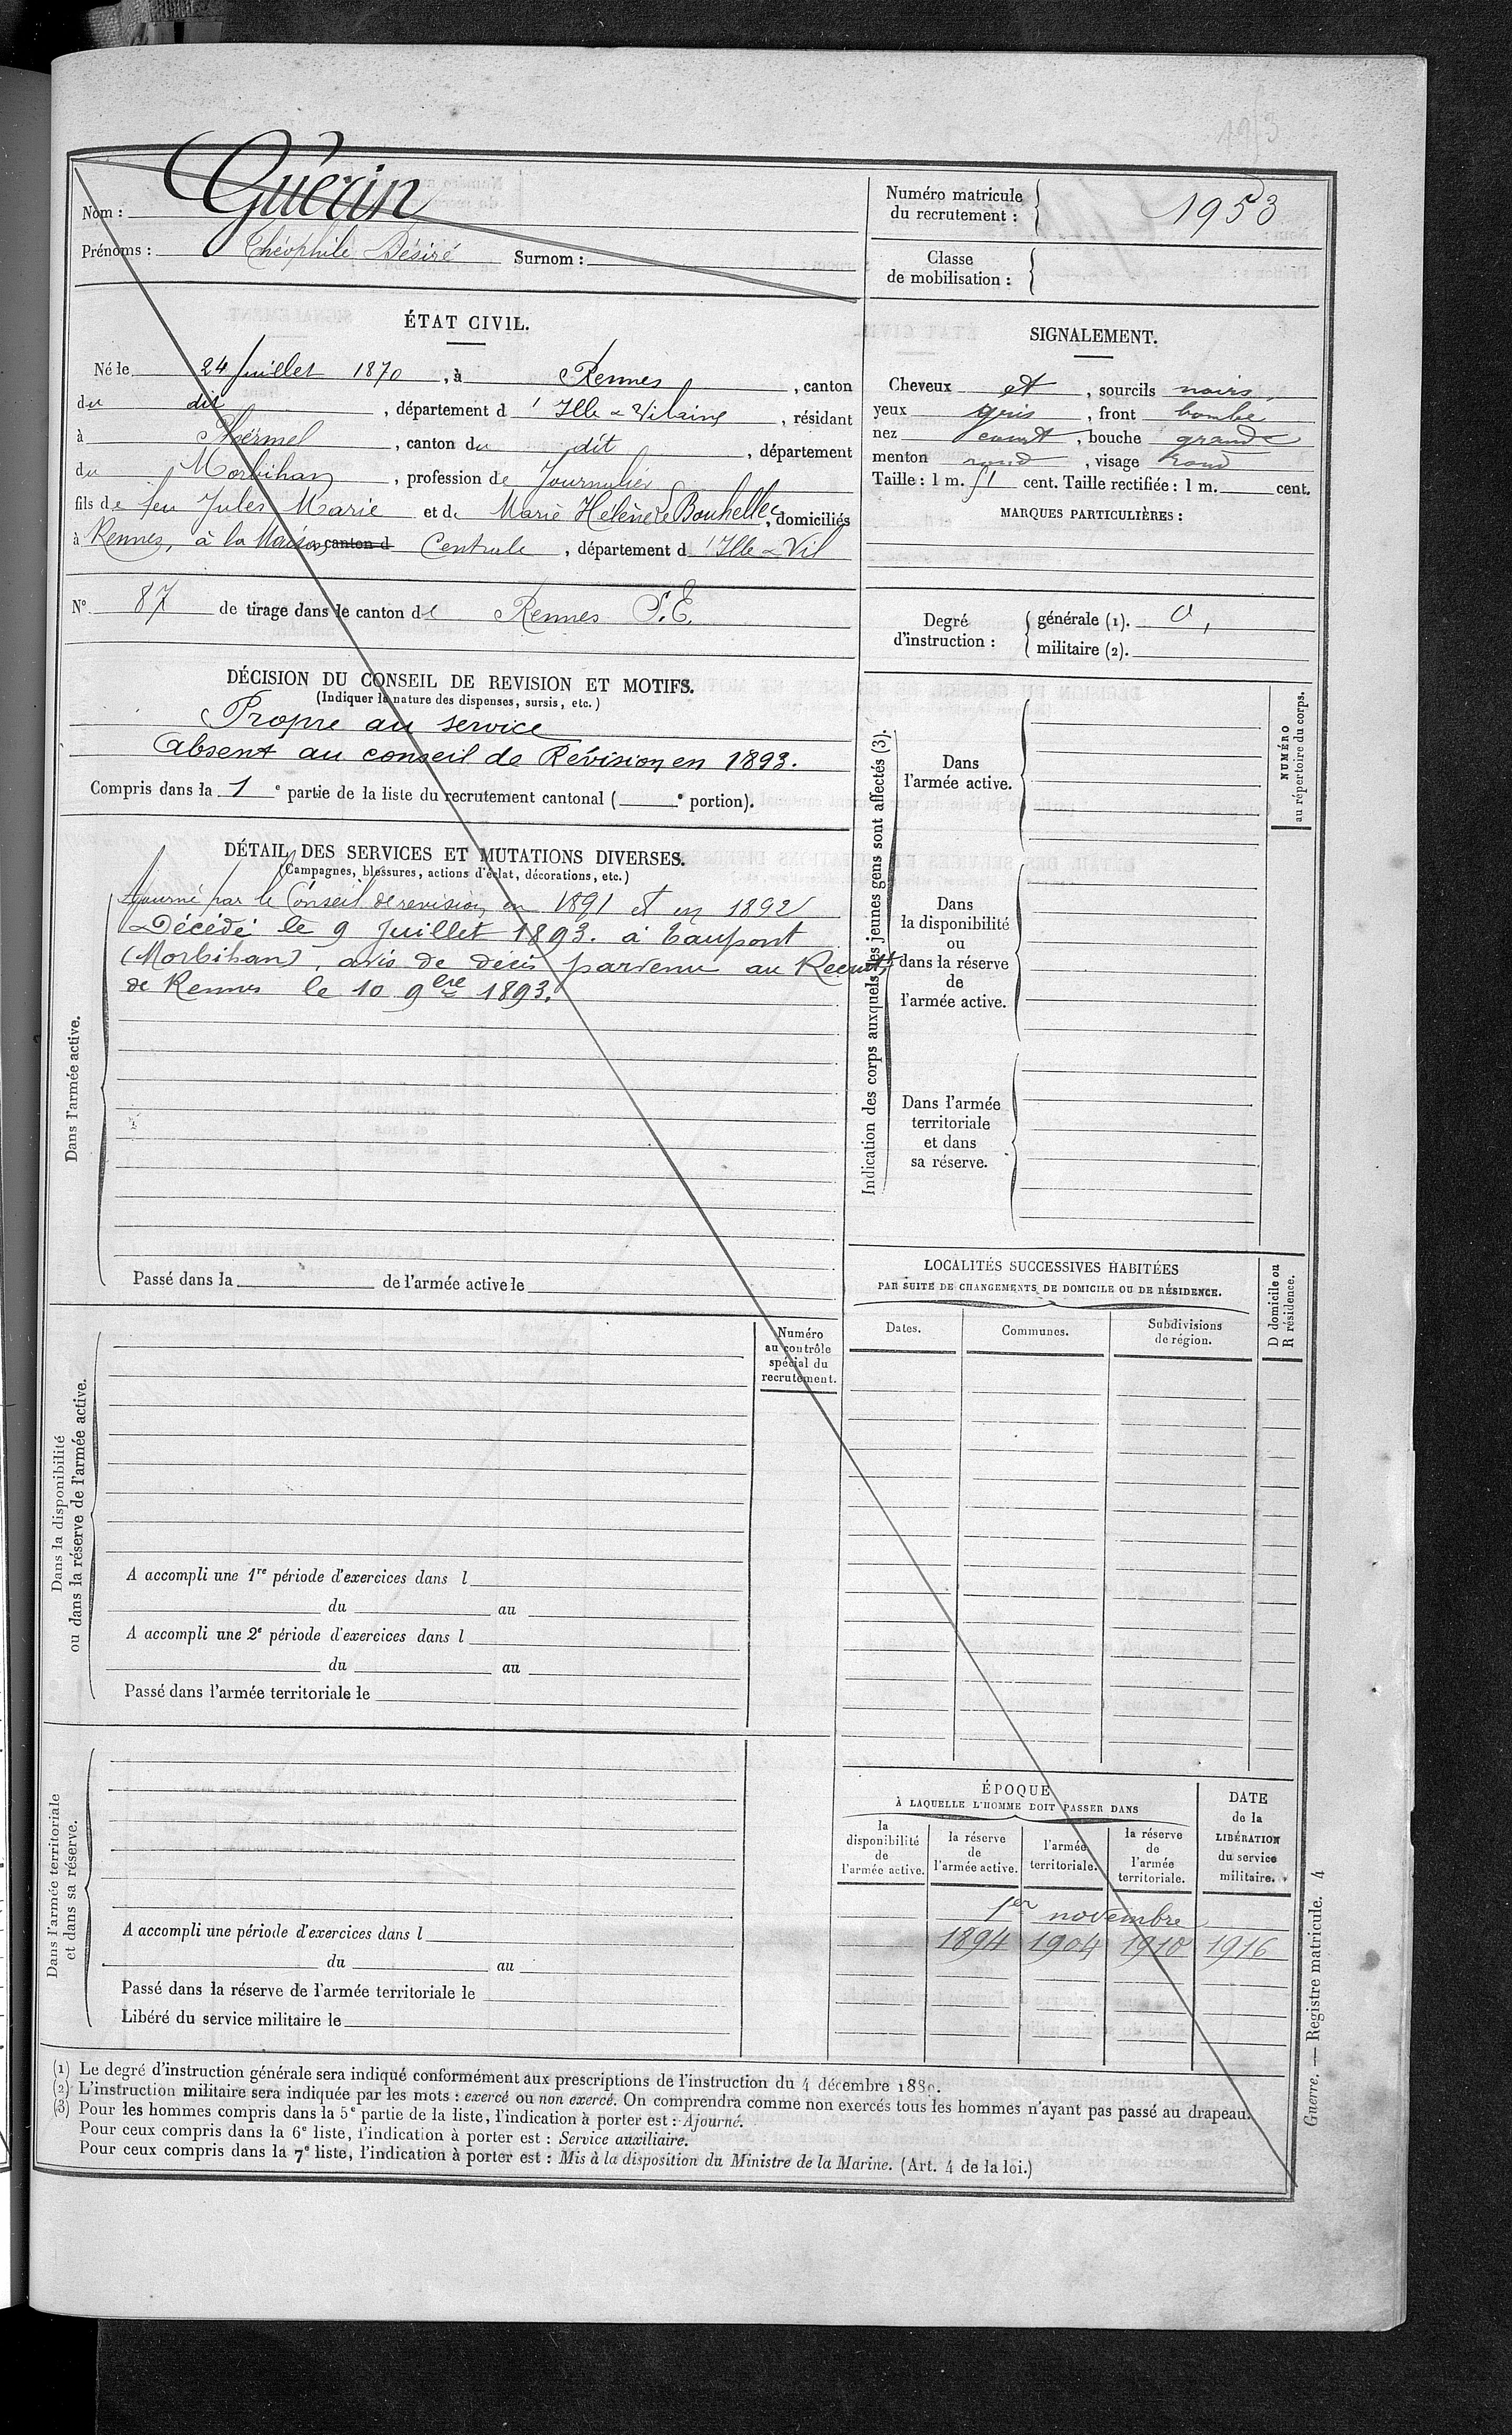 Nom : Guérin
Prénoms : Théophile Désiré Surnom :
Numéro matricule du recrutement : 1953
Classe de mobilisation :
ÉTAT CIVIL.
Né le 24 Juillet 1870, à Rennes, canton
du dit, département d'Ille & Vilaine, résidant
à Ploërmel, canton du dit, département
du Morbihan, profession de Journalier
fils de feu Jules Marie et de Marie Hélène Le Bouhellec, domiciliés
à Rennes, à la Maison canton d Centrale, département d'Ille & Vil
N° 87 de tirage dans le canton de Rennes S.E.
SIGNALEMENT.
Cheveux et, sourcils noirs,
yeux gris, front bombé
nez court, bouche grande
menton rond, visage rond
Taille : 1 m. 51 cent. Taille rectifiée : 1 m. cent.
MARQUES PARTICULIÈRES :
Degré d'instruction :
générale (1). 0,
militaire (2).
DÉCISION DU CONSEIL DE REVISION ET MOTIFS.
(Indiquer la nature des dispenses, sursis, etc.)
Propre au service
Absent au conseil de Révision en 1893.
Compris dans la 1e partie de la liste du recrutement cantonal ( e portion).
DÉTAIL DES SERVICES ET MUTATIONS DIVERSES.
(Campagnes, blessures, actions d'éclat, décorations, etc.)
Dans l'armée active.
Ajourné par le Conseil de revision en 1891 et en 1892
Décédé le 9 Juillet 1893. à Taupont
(Morbihan), avis de décès parvenu au Recrutt
de Rennes le 10 9bre 1893.
Passé dans la de l'armée active le
Indication des corps auxquels les jeunes gens sont affectés (3).
Dans
l'armée active.
Dans
la disponibilité
ou
dans la réserve
de
l'armée active.
Dans l'armée
territoriale
et dans
sa réserve.
NUMÉRO
au répertoire du corps.
LOCALITÉS SUCCESSIVES HABITÉES
PAR SUITE DE CHANGEMENTS DE DOMICILE OU DE RÉSIDENCE.
Dates.
Communes.
Subdivisions
de région.
D domicile ou
R résidence.
Dans la disponibilité
ou dans la réserve de l'armée active.
Numéro
au contrôle
spécial du
recrutement.
A accompli une 1re période d'exercices dans l
du au
A accompli une 2e période d'exercices dans l
du au
Passé dans l'armée territoriale le
Dans l'armée territoriale
et dans sa réserve.
A accompli une période d'exercices dans l
du au
Passé dans la réserve de l'armée territoriale le
Libéré du service militaire le
ÉPOQUE
À LAQUELLE L'HOMME DOIT PASSER DANS
la
disponibilité
de
l'armée active.
la réserve
de
l'armée active.
l'armée
territoriale.
la réserve
de
l'armée
territoriale.
DATE
de la
LIBÉRATION
du service
militaire.
1er novembre
1894 1904 1910 1916
(1) Le degré d'instruction générale sera indiqué conformément aux prescriptions de l'instruction du 4 décembre 1889.
(2) L'instruction militaire sera indiquée par les mots : exercé ou non exercé. On comprendra comme non exercés tous les hommes n'ayant pas passé au drapeau.
(3) Pour les hommes compris dans la 5e partie de la liste, l'indication à porter est : Ajourné.
Pour ceux compris dans la 6e liste, l'indication à porter est : Service auxiliaire.
Pour ceux compris dans la 7e liste, l'indication à porter est : Mis à la disposition du Ministre de la Marine. (Art. 4 de la loi.)
Guerre. — Registre matricule. 4